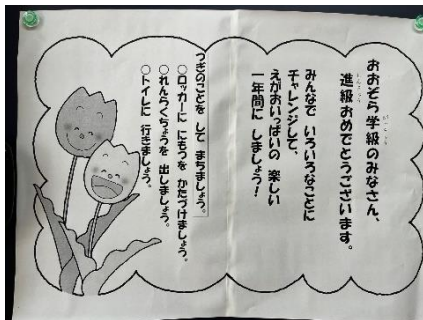 おおぞら学級のみなさん、
進級おめでとうございます。
みんなで いろいろなことに
チャレンジして、
えがおいっぱいの 楽しい
一年間に しましょう!
つぎのことを して まちましょう。
○ロッカーに にもつを かたづけましょう。
○れんらくちょうを 出しましょう。
○トイレに 行きましょう。